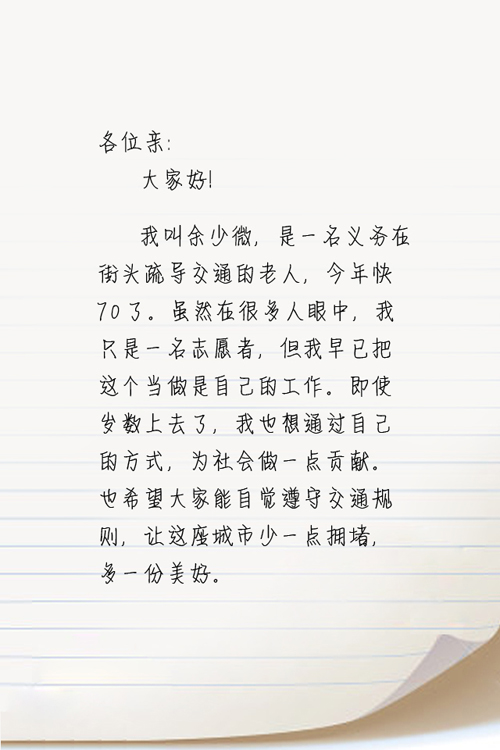 各位亲:
大家好!
我叫余少微，是一名义务在
街头疏导交通的老人，今年快
70了。虽然在很多人眼中，我
只是一名志愿者，但我早已把
这个当做是自己的工作。即使
岁数上去了，我也想通过自己
的方式，为社会做一点贡献。
也希望大家能自觉遵守交通规
则，让这座城市少一点拥堵，
多一份美好。